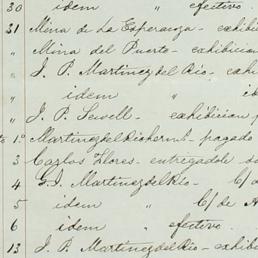 30 idem " efectivo.
31 Mina de La Esperanza - exhibi
" Mina del Puerto - exhibicion
" J. P. Martinez del Rio - exhi
" idem " ib
" J. P. Sewell - exhibicion p
to 1º Martinez del Rio herms - pagado
3 Carlos Flores - entregadole su
4 G. I. Martinez del Rio - C/ d
5 idem " C/ de A
6 idem " efectivo.
13 J. P. Martinez del Rio - exhib